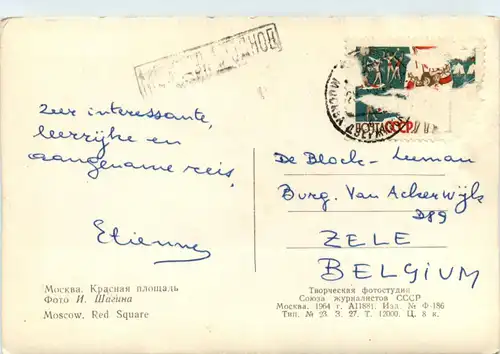 ПОЧТА СССР
Zeer interessante,
leerrijke en
aangename reis,
Etienne
De Block-Leeman
Burg. Van Ackerwijk
D89
ZELE
BELGIUM
Москва. Красная площадь
Фото И. Шагина
Moscow, Red Square
Творческая фотостудия
Союза журналистов СССР
Москва. 1964 г. А11881. Изд. № Ф-186
Тип. № 23 З. 27. Т. 12000. Ц. 8 к.